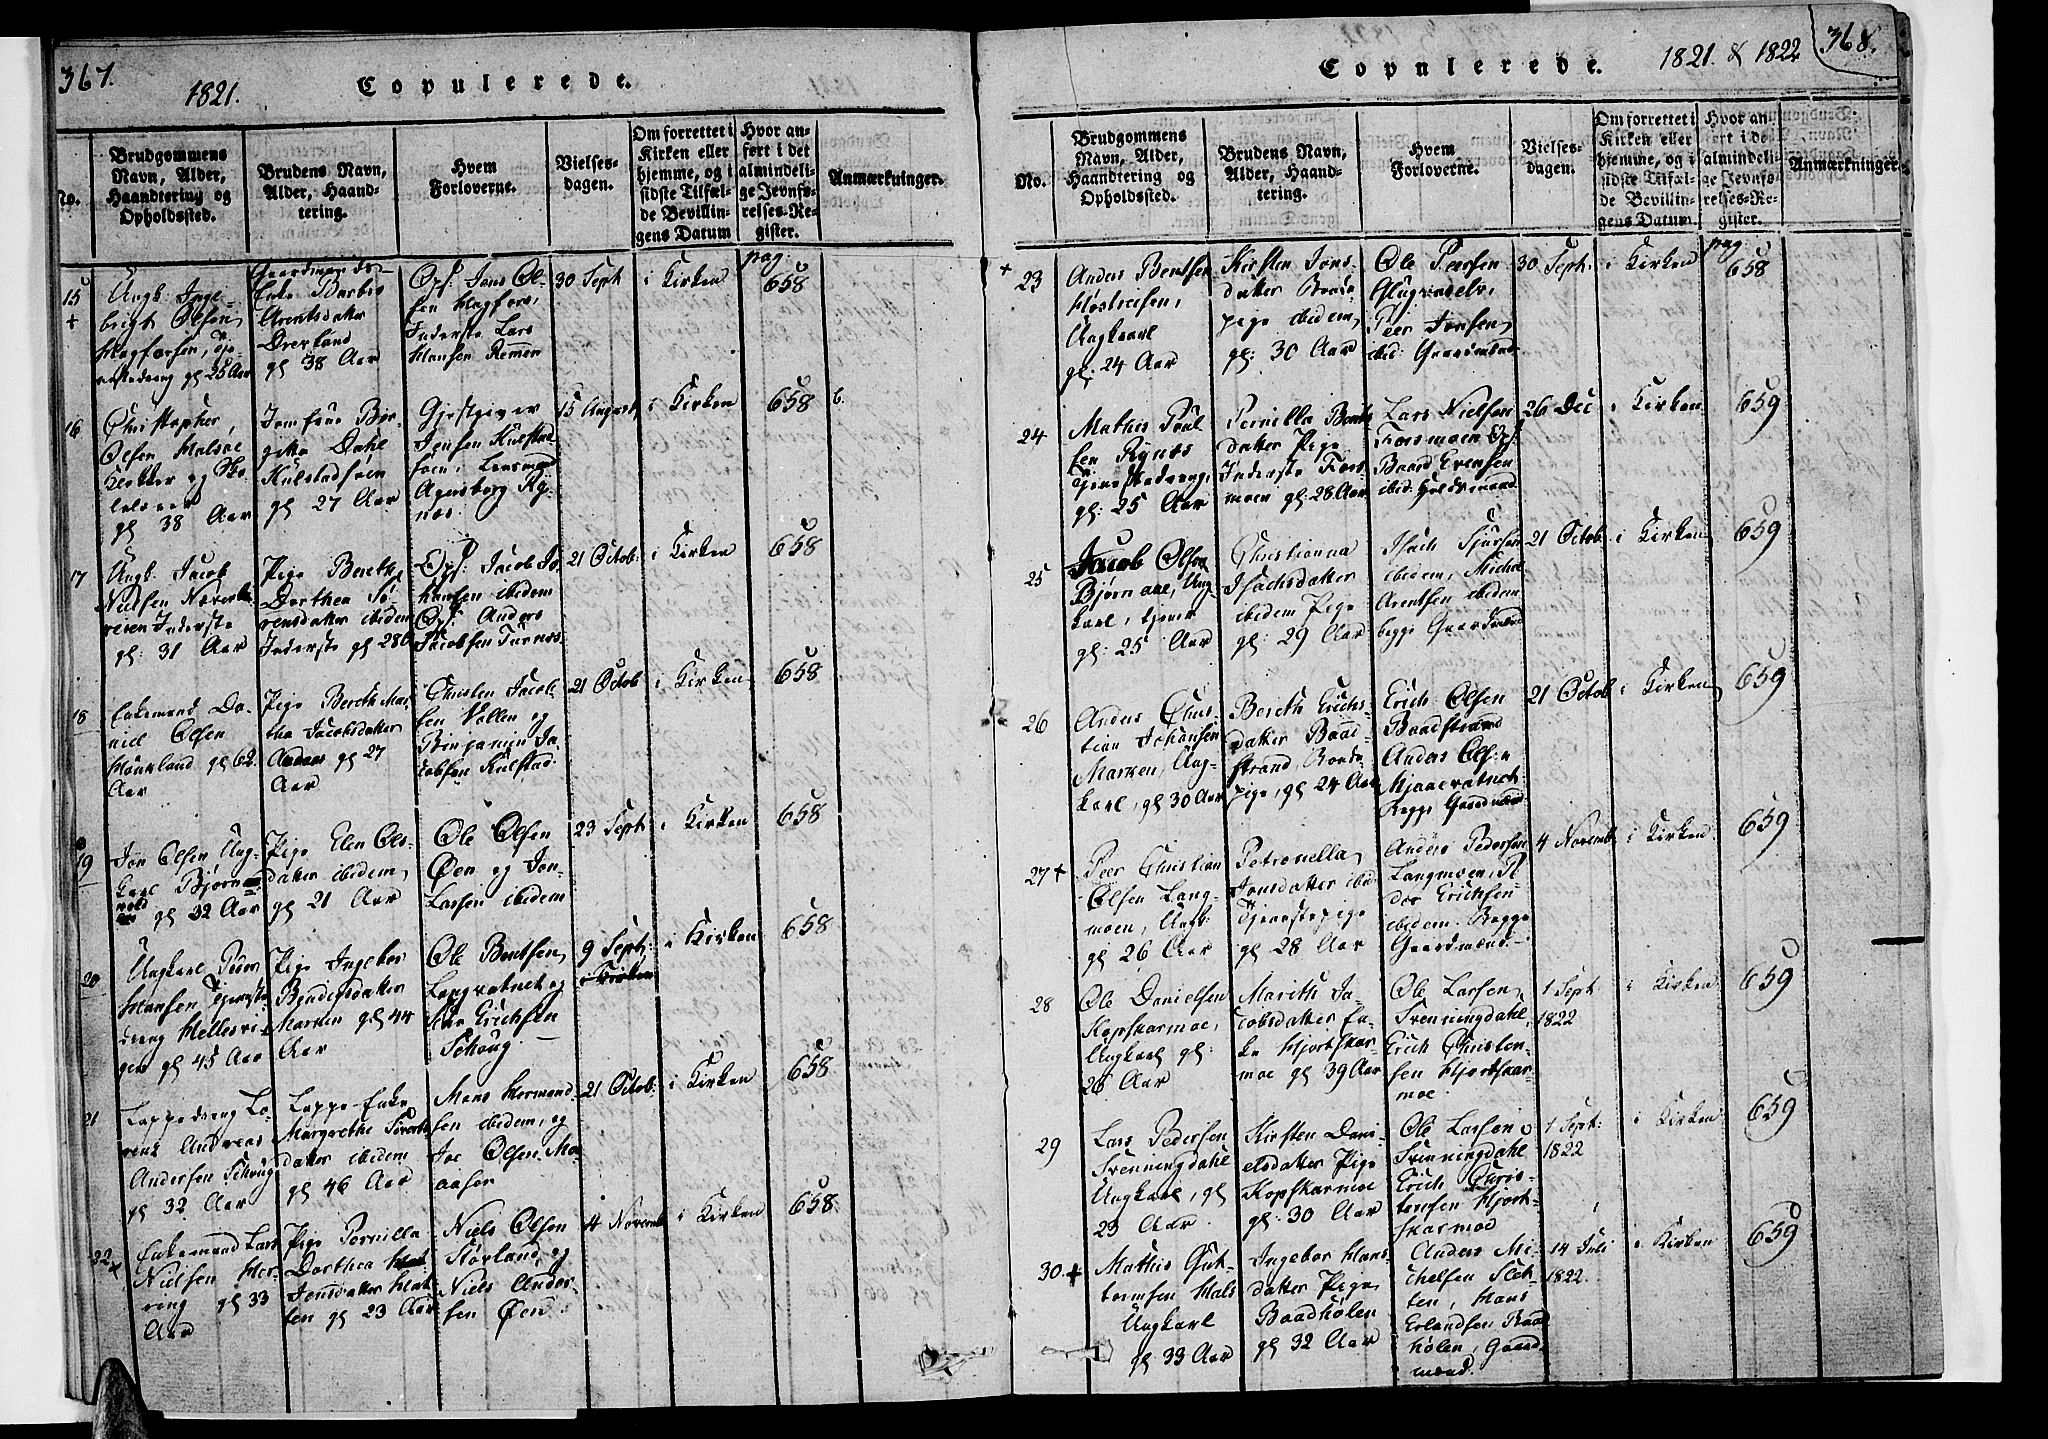 367.
1821.
Copulerede.
No.
Brudgommens
Navn, Alder,
Haandtering og
Opholdssted.
Brudens Navn,
Alder, Haand-
tering.
Hvem
Forloverne.
Vielses-
dagen.
Om forrettet i
Kirken eller
hjemme, og i
sidste Tilfæl-
de Bevillin-
gens Datum
Hvor an-
ført i det
almindeli-
ge Jevnfø-
relses-Re-
gister.
Anmærkninger.
pag:
15
+
Ungk. Inge-
brigt Olsen
gl 25 Aar
Gaardmands
Enke
Arentsdatter
gl 38 Aar
Ops: Jons Ol-
sen Hagfors,
Inderste Lars
Hansen Remen
30 Sept
i Kirken
658
16
Christopher
Olsen Halsøe
Kirker og Sko-
lelærer
gl 38 Aar
Jomfrue Bir-
gitta Dahl
Kulstadsøen
gl 27 Aar
Gjestgiver
Jensen Kulstad-
søen, Lensmand
15 August
i Kirken
658
6.
17
Ungk. Jacob
Nielsen
Inderste
gl: 31 Aar
Pige Bereth
Dorthea Sø-
rensdatter ibidem
Inderste gl 28
Ops: Jacob Jo-
hansen ibidem
Ops: Anders
Jacobsen
21 Octob:
i Kirken
658
18
Enkemand Da-
niel Olsen
gl 62
Aar
Pige Bereth Mar-
tha Jacobsdatter
gl 27
Aar
Christen Jacob-
sen Vollen og
Binjamin Ja-
cobsen Kulstad
21 Octob
i Kirken
658
19
Jon Olsen Ung-
karl Bjørn-
gl 32 Aar
Pige Elen Ols-
datter ibidem
gl 21 Aar
Ole Olsen
Øen og Jon
Larsen ibidem
23 Sept
i Kirken
658
20
Ungkarl Peder
Hansen Tjeneste-
dreng
gl 45 Aar
Pige Ingebor
gl 44
Aar
Ole Bentsen
Langvatnet og
Erichsen
Schoug
9 Sept:
i Kirken
658
21
Lappedreng Lo-
rents Andreas
Andersen Schoug
gl 32 Aar
Lappe-Enke
Margrethe
datter ibidem
gl 46 Aar
Mons Hermand-
sen ibidem, og
Joe Olsen
21 Octob:
i Kirken
658
22
+
Enkemand Lars
Nielsen Her-
ring gl 33
Aar
Pige Pernilla
Dorthea
Jensdatter
gl 23 Aar
Niels Olsen
Størland, og
Niels Ander-
sen Øen
4 Novemb
i Kirken
658
368.
Copulerede.
1821. & 1822
No.
Brudgommens
Navn, Alder,
Haandtering og
Opholdssted.
Brudens Navn,
Alder, Haand-
tering.
Hvem
Forloverne.
Vielses-
dagen.
Om forrettet i
Kirken eller
hjemme, og i
sidste Tilfæl-
de Bevillin-
gens Datum.
Hvor an-
ført i det
almindeli-
ge Jevnfø-
relses-Re-
gister.
Anmærkninger
pag:
+
23
Anders Bentsen
Ungkarl
gl: 24 Aar
Kirsten Jons-
datter Bonde-
pige ibidem
gl: 30 Aar
Ole Peersen
Peer Jonsen
ibid: Gaardmænd
30 Sept:
i Kirken
658
24
Mathis Poul-
sen
Tjenestedreng
gl: 25 Aar
Pernilla
datter Pige
Inderste Fors-
moen gl: 28 Aar
Lars Nielsen
Forsmoen Ops:
Baard Evensen
26 Dec
i Kirken
659
25
Jacob Olsen
Bjørnaae, Ung-
karl, tjener
gl: 25 Aar
Christianna
Isachsdatter
ibidem Pige
gl: 29 Aar
Isach Sjursen
ibidem, Michel
Arentsen ibidem
begge Gaardmænd
21 Octob:
i Kirken
659
26
Anders Chris-
tian Johansen
Marken, Ung-
karl, gl 30 Aar
Bereth Erichs-
datter Baad-
strand Bonde-
pige, gl 24 Aar
Erich Olsen
Baadstrand
Anders Olsen
Begge Gaardmænd
21 Octob
i Kirken
659
27 +
Peer Christian
Olsen Lang-
moen, Ungk
gl 26 Aar
Petronella
Jonsdatter ibid:
Tjenestepige
gl 28 Aar
Anders Pedersen
Langmoen, P-
der Erichsen
ibidem. Begge
Gaardmænd
4 Novemb
i Kirken
659
28
Ole Danielsen
Kopskarmoe,
Ungkarl gl:
26 Aar
Marith Ja-
cobsdatter En-
ke Hjortskar-
moe gl 39 Aar
Ole Larsen
Svenningdahl,
Erich Christen-
sen Hjortskar-
moe
1 Sept:
1822
i Kirken
659
29
Lars Pedersen
Svenningdahl
Ungkarl, gl
23 Aar.
Kirsten Dani-
elsdatter Pige
Kopskarmoe
gl: 30 Aar
Ole Larsen
Svenningdahl
Erich Chris-
tensen Hjort-
skarmoe
1 Sept:
1822
i Kirken
659
30. +
Mathis Gut-
tormsen Hals
Ungkarl
gl 33 Aar
Ingebor Hans-
datter Pige
Baadhølen
gl 32 Aar
Anders Mi-
chelsen Slet-
ten, Hans
Erlandsen Baad-
hølen, Gaard-
mænd.
14 Juli
1822.
i Kirken
659